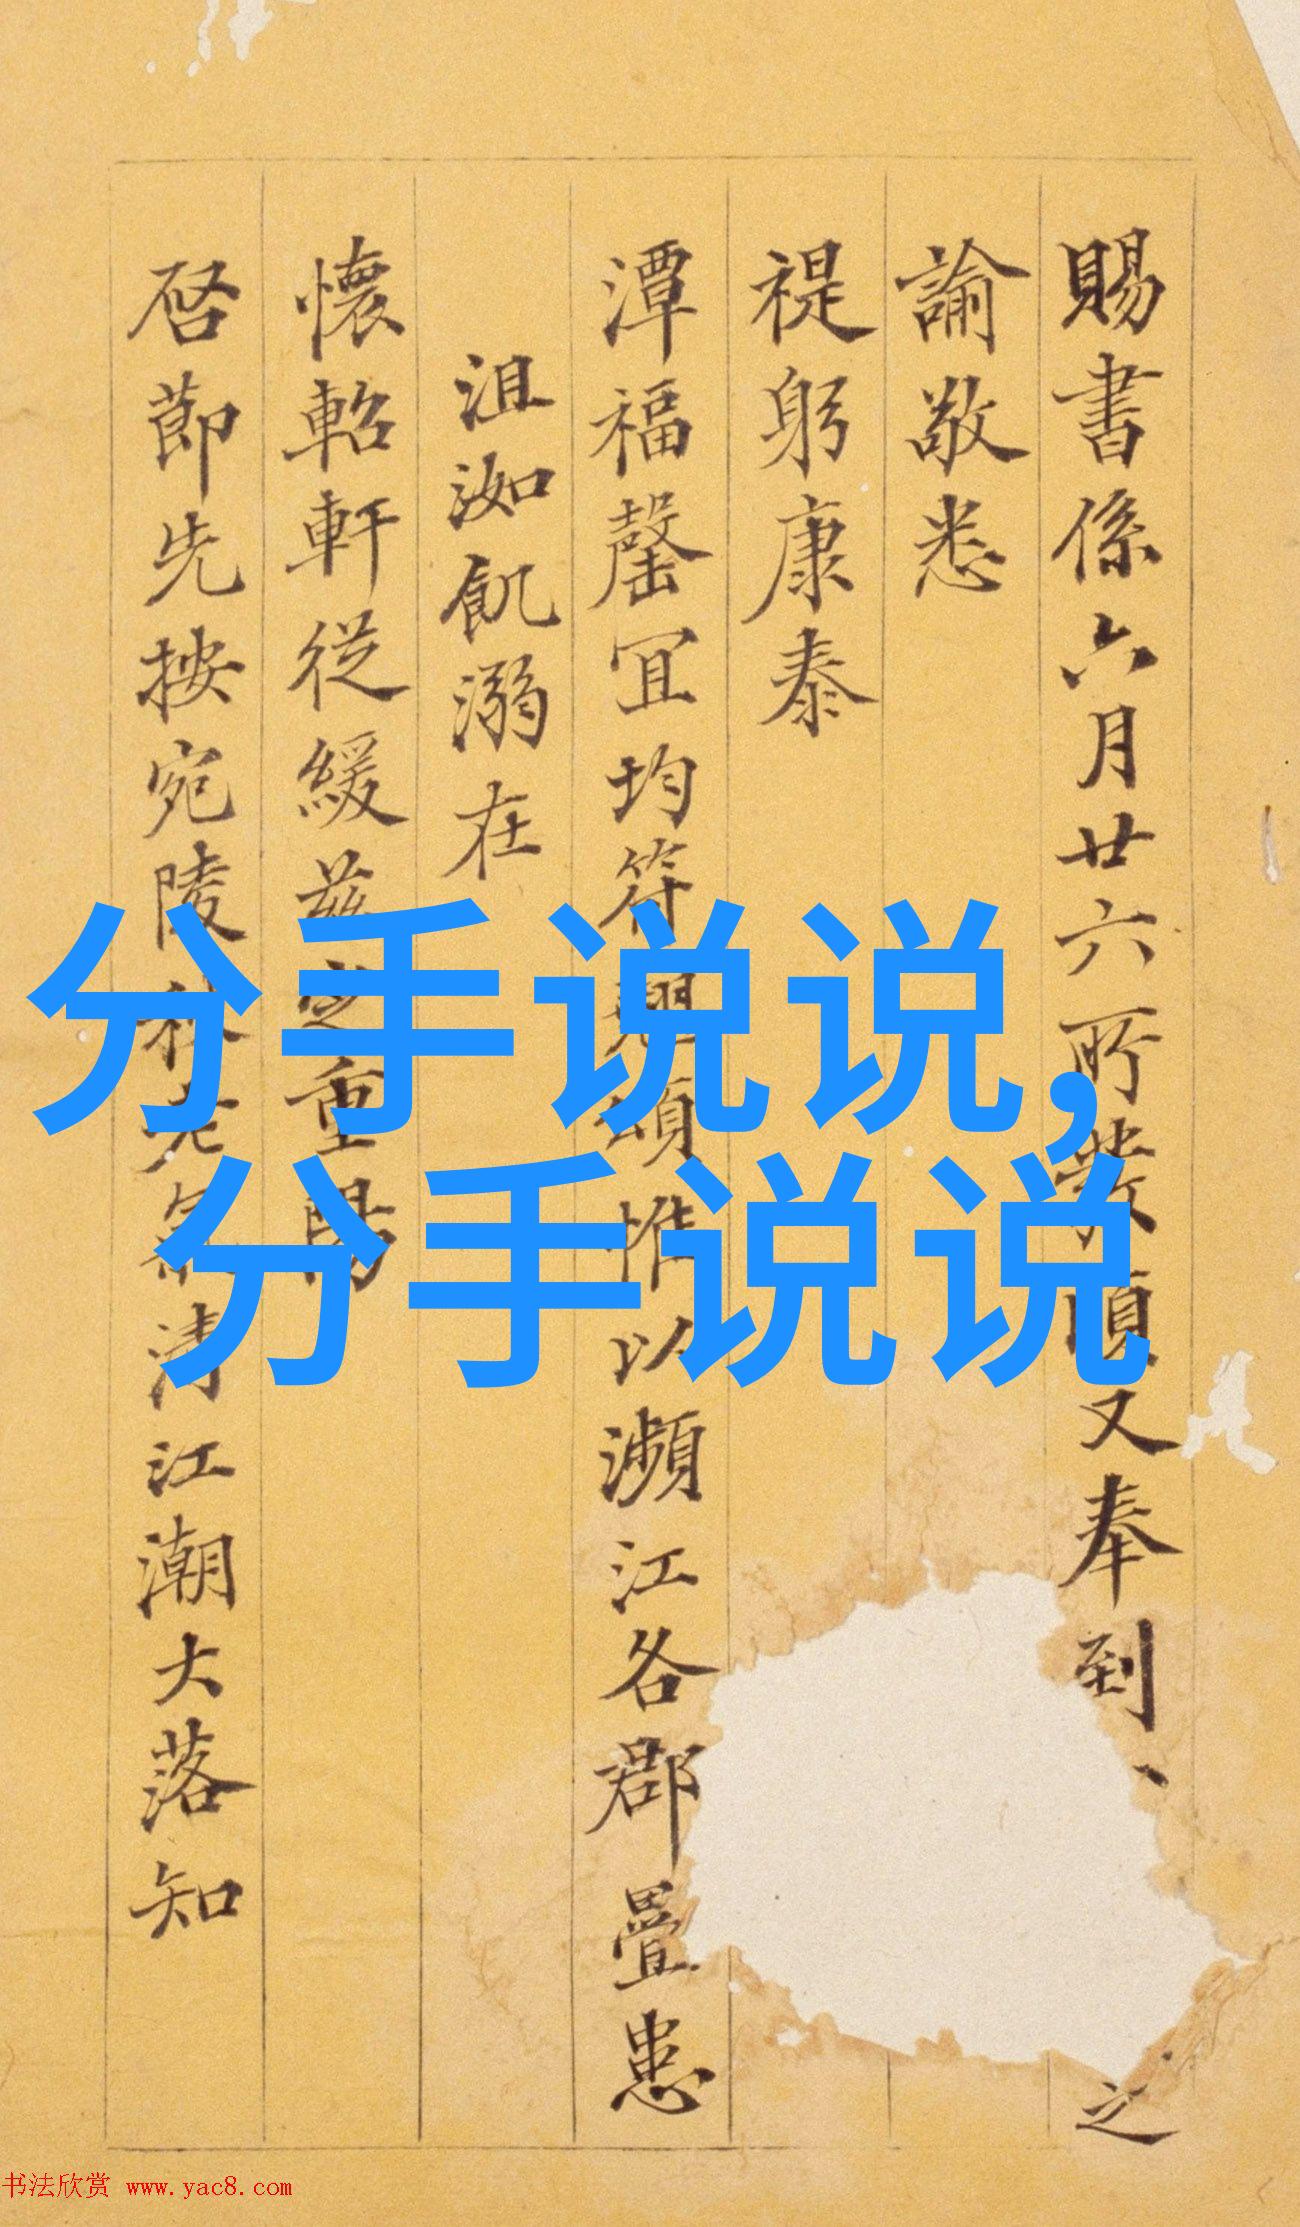 賜書係六月廿六所發頃又奉到、之
諭敬悉
禔躬康泰
潭福罄宜均符頌惟以瀕江各郡疊患
沮洳飢溺在
懷軺軒從緩茲之重陽
啓節先按宛陵秋清江潮大落知
分手说说,
分手说说
书法欣赏 www.yac8.com